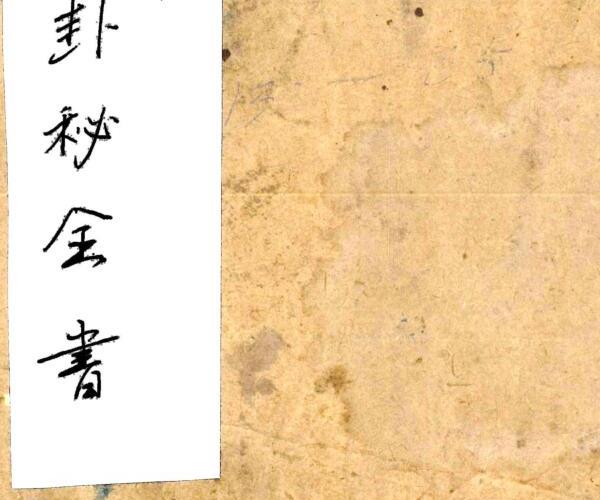 卦秘全書